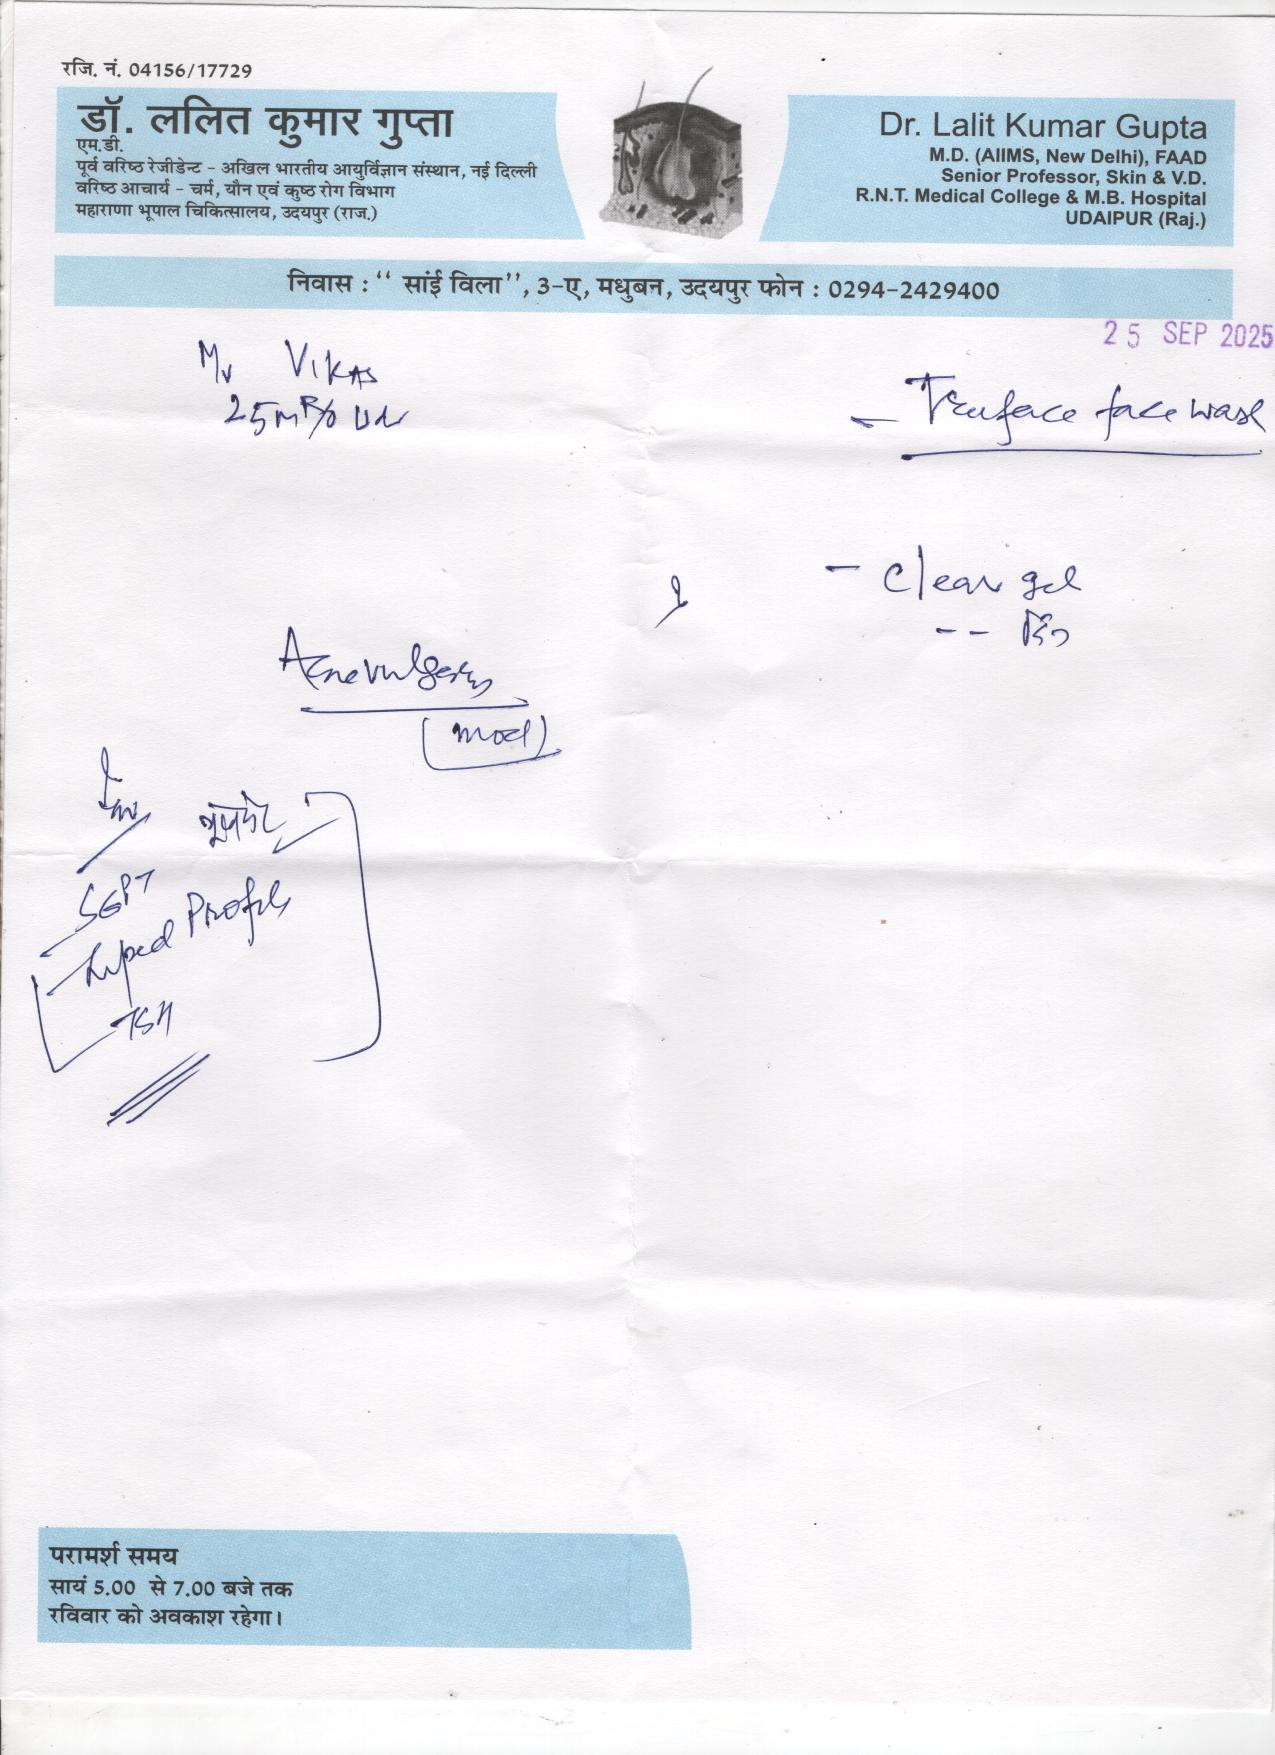 रजि. नं. 04156/17729
डॉ. ललित कुमार गुप्ता
एम.डी.
पूर्व वरिष्ठ रेजीडेन्ट - अखिल भारतीय आयुर्विज्ञान संस्थान, नई दिल्ली
वरिष्ठ आचार्य - चर्म, यौन एवं कुष्ठ रोग विभाग
महाराणा भूपाल चिकित्सालय, उदयपुर (राज.)
Dr. Lalit Kumar Gupta
M.D. (AIIMS, New Delhi), FAAD
Senior Professor, Skin & V.D.
R.N.T. Medical College & M.B. Hospital
UDAIPUR (Raj.)
निवास : “ सांई विला”, ३-ए, मधुबन, उदयपुर फोन : 0294-2429400
25 SEP 2025
Mr VIKAS
25 M R/o
face wash
- Clear gel
Acne vulgaris
(mod)
Inv
SGPT
Lipid Profile
TSH
परामर्श समय
सायं 5.00 से 7.00 बजे तक
रविवार को अवकाश रहेगा।